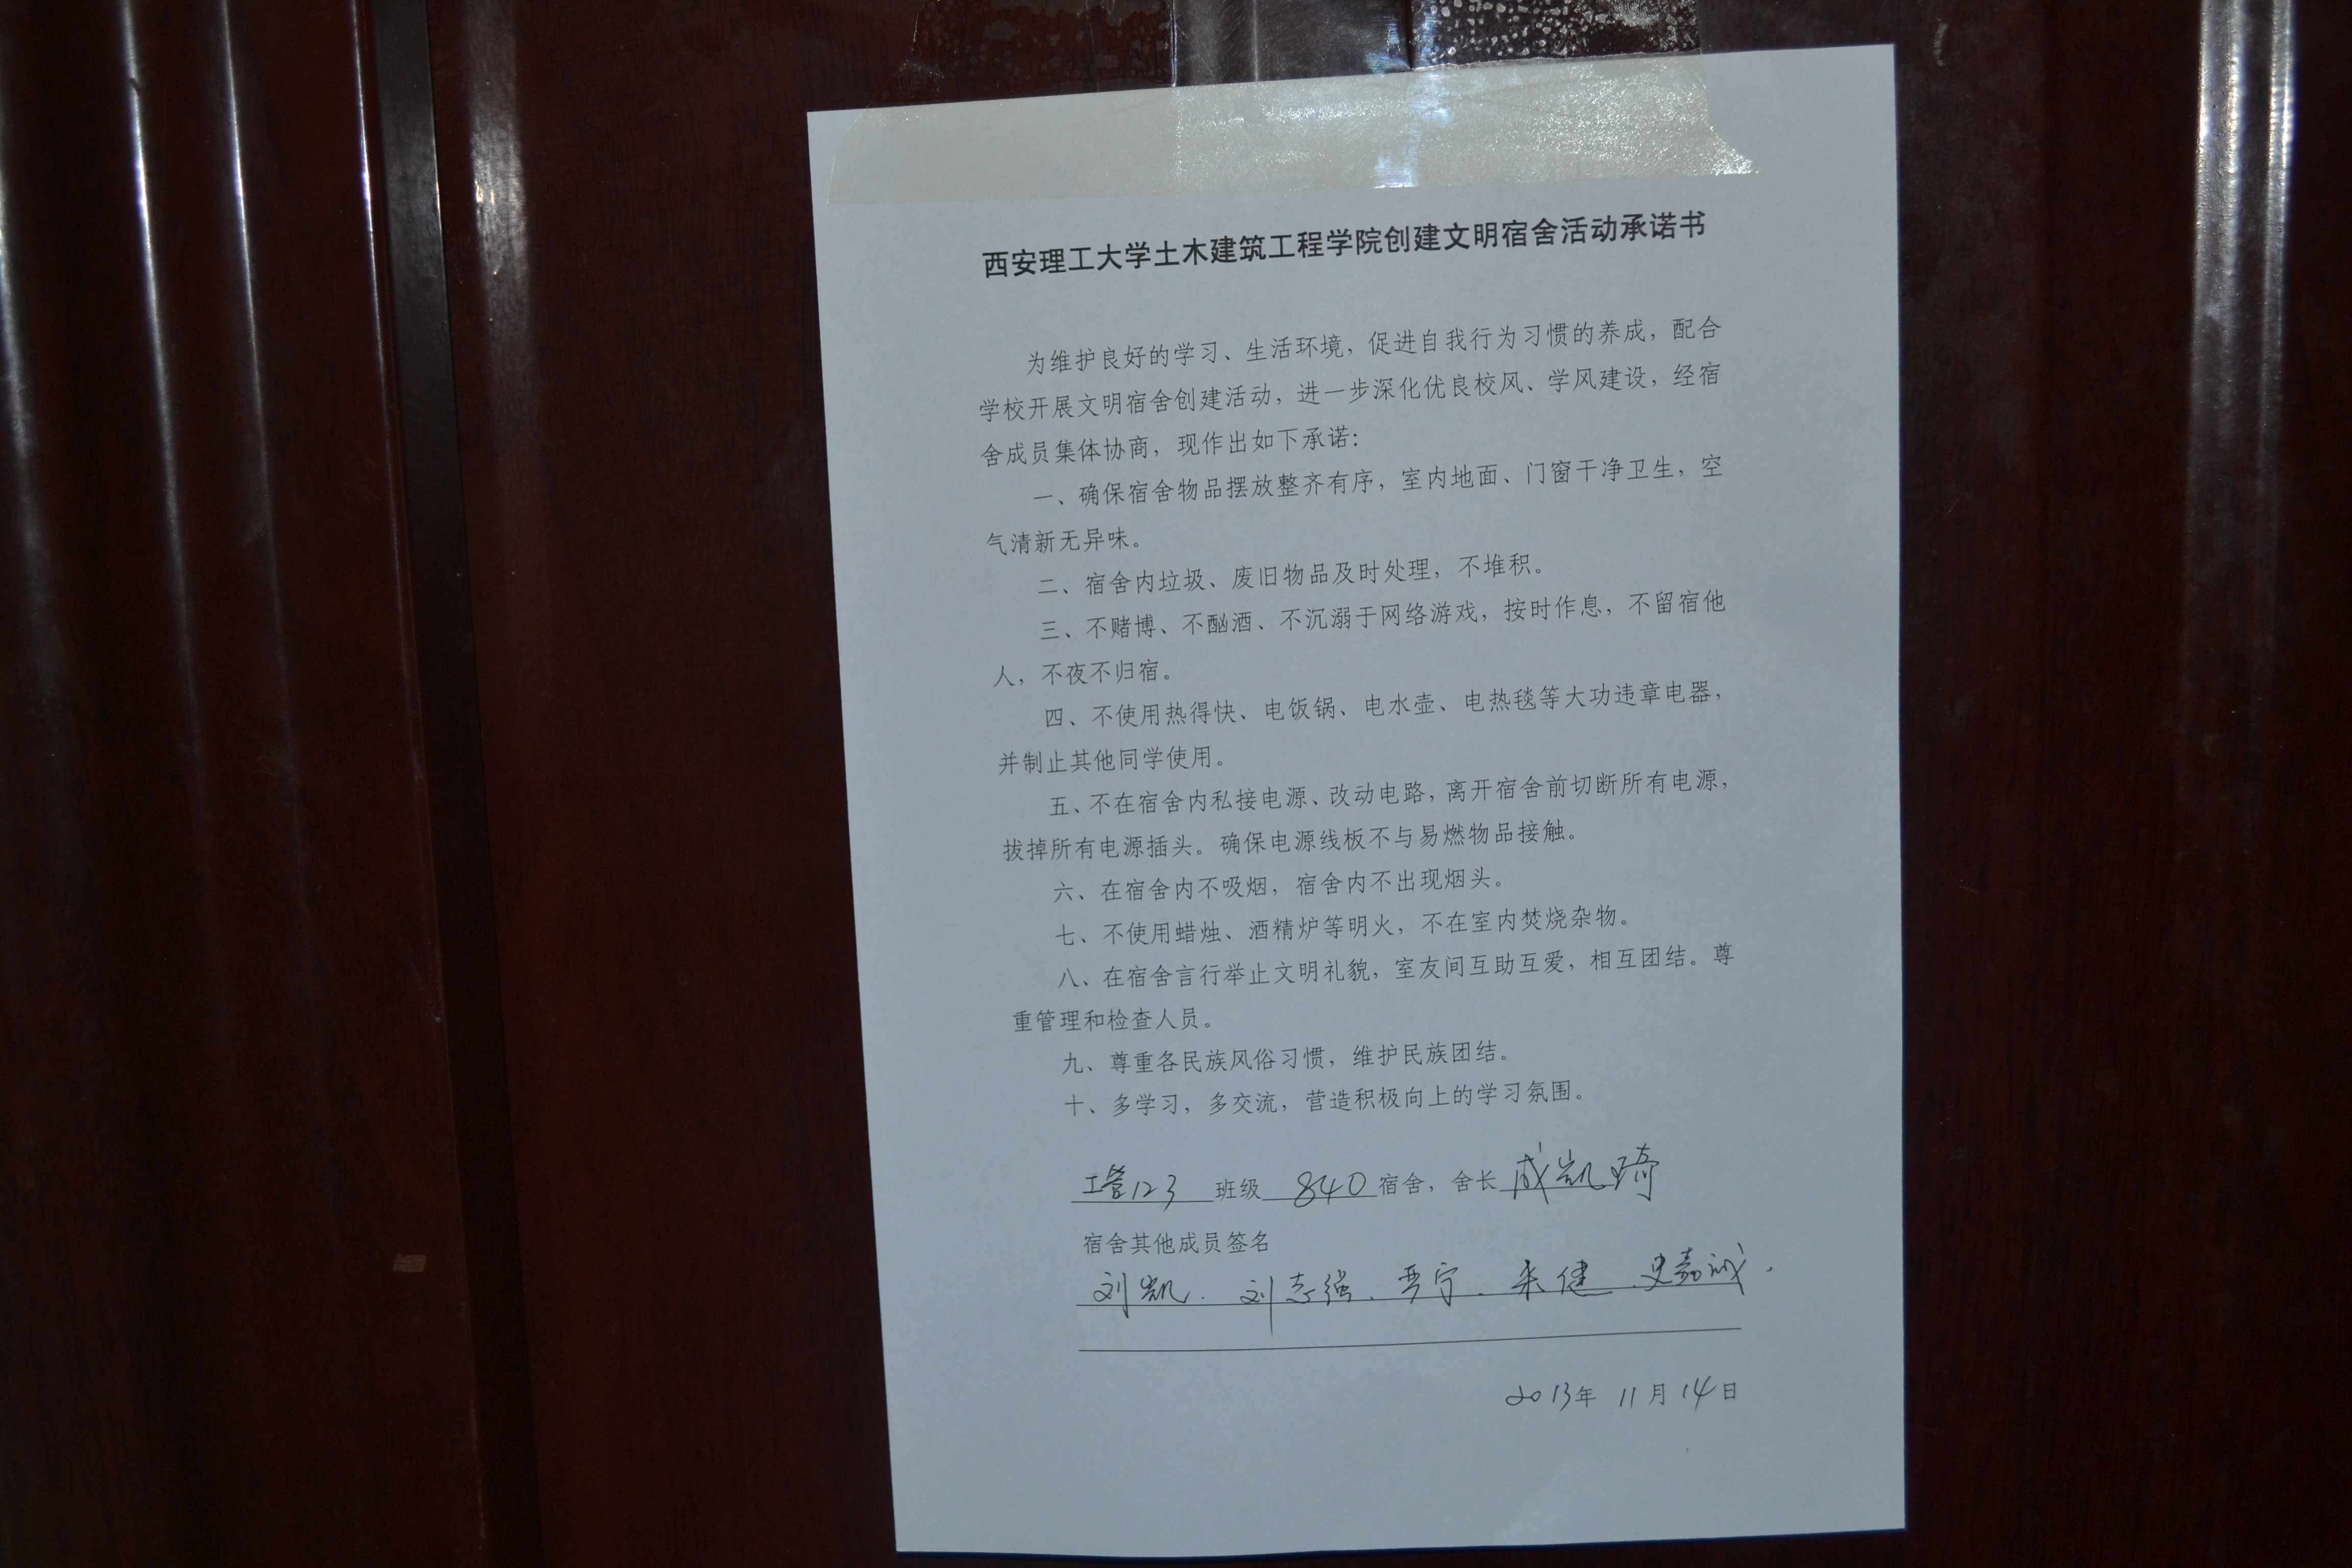 西安理工大学土木建筑工程学院创建文明宿舍活动承诺书
为维护良好的学习、生活环境，促进自我行为习惯的养成，配合
学校开展文明宿舍创建活动，进一步深化优良校风、学风建设，经宿
舍成员集体协商，现作出如下承诺：
一、确保宿舍物品摆放整齐有序，室内地面、门窗干净卫生，空
气清新无异味。
二、宿舍内垃圾、废旧物品及时处理，不堆积。
三、不赌博、不酗酒、不沉溺于网络游戏，按时作息，不留宿他
人，不夜不归宿。
四、不使用热得快、电饭锅、电水壶、电热毯等大功违章电器，
并制止其他同学使用。
五、不在宿舍内私接电源、改动电路，离开宿舍前切断所有电源，
拔掉所有电源插头。确保电源线板不与易燃物品接触。
六、在宿舍内不吸烟，宿舍内不出现烟头。
七、不使用蜡烛、酒精炉等明火，不在室内焚烧杂物。
八、在宿舍言行举止文明礼貌，室友间互助互爱，相互团结。尊
重管理和检查人员。
九、尊重各民族风俗习惯，维护民族团结。
十、多学习，多交流，营造积极向上的学习氛围。
工管123 班级 840 宿舍，舍长 成凯琦
宿舍其他成员签名
刘凯、刘志强、晋宁、朱健、史嘉诚
2013年 11月 14日